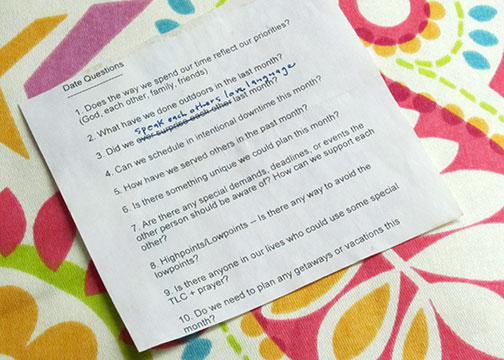 Date Questions
1. Does the way we spend our time reflect our priorities?
(God, each other, family, friends)
2. What have we done outdoors in the last month?
speak each others love language
3. Did we ever surprise each other last month?
4. Can we schedule in intentional downtime this month?
5. How have we served others in the past month?
6. Is there something unique we could plan this month?
7. Are there any special demands, deadlines, or events the
other person should be aware of? How can we support each
other?
8. Highpoints/Lowpoints – Is there any way to avoid the
lowpoints?
9. Is there anyone in our lives who could use some special
TLC + prayer?
10. Do we need to plan any getaways or vacations this
month?